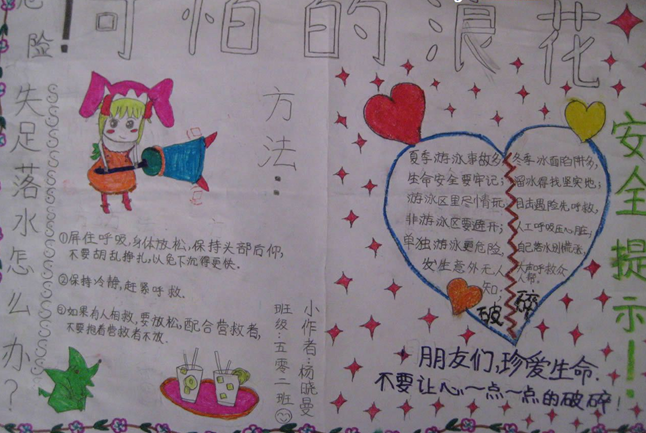 危险!
可怕的浪花
失足落水怎么办?
方法:
①屏住呼吸,身体放松,保持头部后仰,
不要胡乱挣扎,以免下沉得更快.
②保持冷静,赶紧呼救.
③如果有人相救,要放松,配合营救者,
不要抱着营救者不放.
小作者:杨晓曼
班级:五零二班
夏季游泳事故多,
生命安全要牢记;
游泳区里尽情玩,
非游泳区要避开;
单独游泳更危险,
发生意外无人
知,
破
冬季冰面陷阱多,
溜冰寻找坚实地;
目击遇险先呼救,
人工呼吸压心脏;
大声呼救众
人帮.
碎
安全提示!
朋友们,珍爱生命.
不要让心一点一点的破碎!